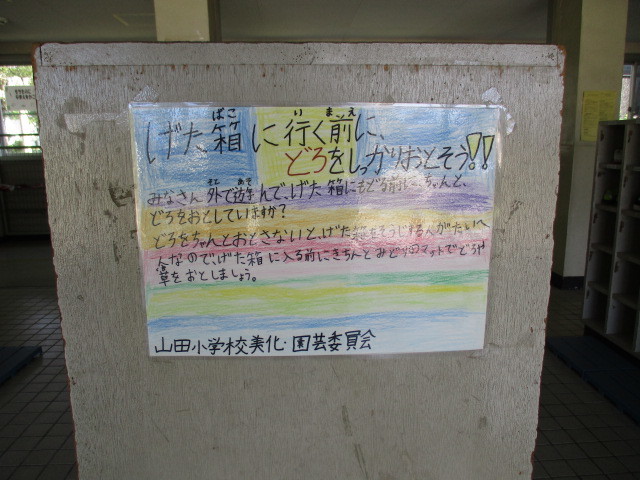 げた箱に行く前に、
どろをしっかりおとそう!!
みなさん外で遊んで、げた箱にもどる前に、ちゃんと、
どろをおとしていますか?
どろをちゃんとおとさないと、げた箱をそうじする人がたいへ
んなので、げた箱に入る前にきちんとみどりのマットでどろや
草をおとしましょう。
山田小学校美化・園芸委員会